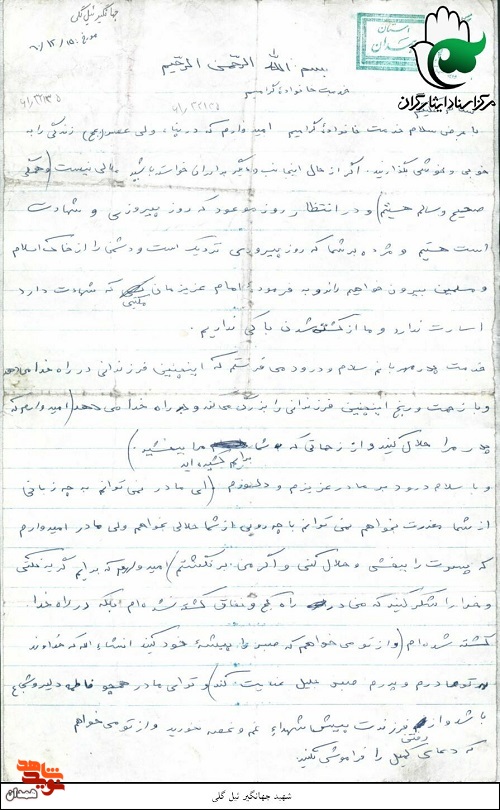 جهانگیر نیل گلی
مورخ: ۶۰/۱۲/۱۵
استان
همدان
مرکز اسناد ایثارگران
بسم الله الرحمن الرحیم
خدمت خانوادهٔ گرامیم
با عرض سلام خدمت خانوادهٔ گرامیم امیدوارم که در پناه ولی عصر (عج) زندگی را به
خوبی و خوشی بگذارنید. اگر از حال اینجانب جهانگیر خواسته باشید ملالی نیست (و همگی
صحیح و سالم هستیم) و در انتظار روز موعود که روز پیروزی و شهادت
است هستیم و مژده بر شما که روز پیروزی نزدیک است و دشمن را از خاک اسلام
و مسلمین بیرون خواهیم راند و به فرمودهٔ امام عزیزمان مکتبی که شهادت دارد
اسارت ندارد و ما از کشته شدن باکی نداریم.
خدمت پدر مهربانم سلام و درود می فرستم که اینچنین فرزندانی در راه خدا می دهد
و با زحمت و رنج اینچنین فرزندانی را بزرگ می کند و در راه خدا می دهد (امیدوارم که
پدر مرا حلال کنید و از زحماتی که برایم کشیده اید ما ببخشید.)
و با سلام درود بر مادر عزیزم و دلسوزم (ای مادر نمی توانم به چه زبانی
از شما معذرت بخواهم نمی توانم با چه رویی از شما حلالی بخواهم ولی مادر امیدوارم
که پسرت را ببخشی و حلال کنی و اگر من برنگشتم) امیدوارم که برایم گریه نکنی
و خدا را شکر کنید که من در راه کج و خلافی کشته نشده ام بلکه در راه خدا
کشته شده ام (و از تو می خواهم که صبر را پیشهٔ خود کنید انشاء الله که خداوند
به تو مادرم و پدرم صبر جلیل عنایت کند) و تو ای مادر همچو فاطمه دلیر و شجاع
باشد و از فرزندت پیش شهداء غم و غصه نخورید و از تو می خواهم
رفتن
که دعای کمیل را فراموش نکنید.
نوید شاهد
همدان
شهید جهانگیر نیل گلی